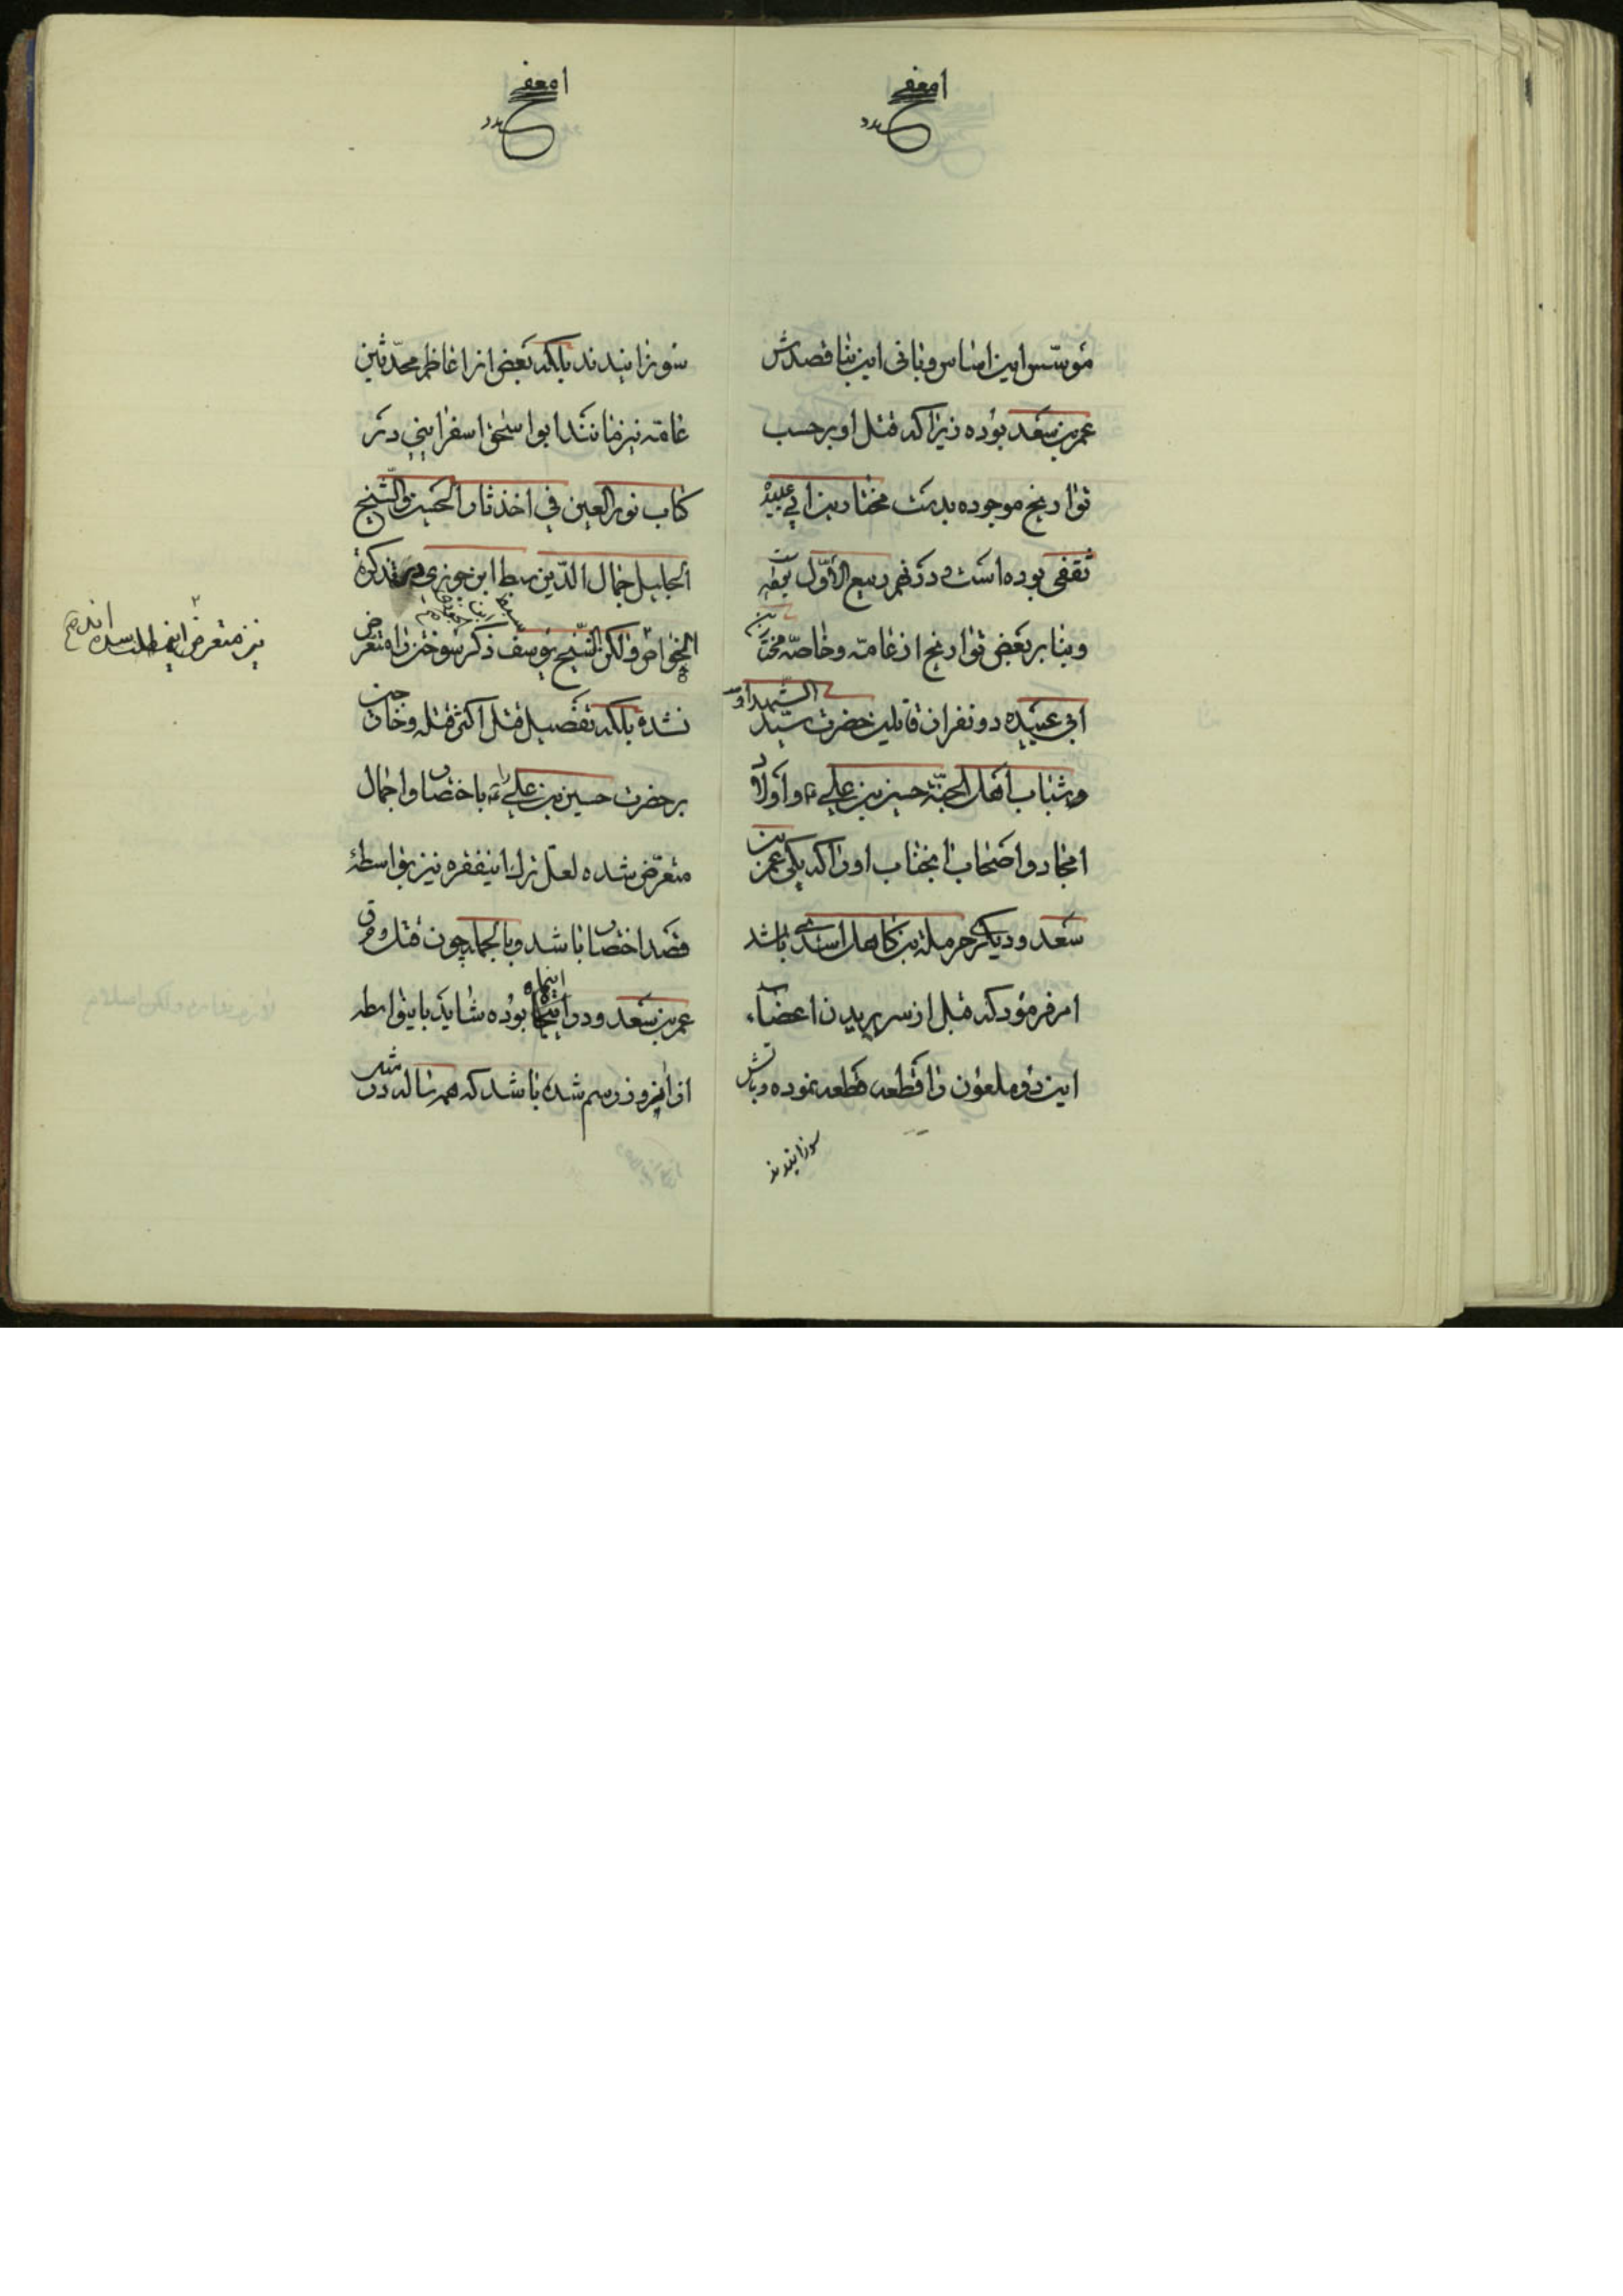 مؤسّس این اساس و بانی این بنا قصدش
عمر بن سعد بوده زیرا که قتل او بر حسب
تواریخ موجوده بدست مختار بن ابی عبیدهٔ
ثقفی بوده است در نهم ربیع الأوّل
و بنا بر بعض تواریخ از عامّه و خاصّه مختار بن
ابی عبیده دو نفر از قاتلین حضرت سیّد الشهداء
و شباب اهل الجنّة حسین بن علی ع و اولاد
امجاد و اصحاب انجناب او را که یکی عمر بن
سعد و دیگری حرملة بن کاهل اسدی باشد
امر فرمود که قبل از سر بریدن اعضاء
این دو ملعون را قطعه قطعه نموده و باتش
سوزانیدند
سوزانیدند بلکه بعض از اعاظم محدّثین
عامّه نیز مانند ابو اسحق اسفراینی در
کتاب نور العین فی اخذ ثار الحسین و الشیخ
الجلیل جمال الدّین سبط ابن جوزی در تذکرة
الخواص و لکن الشّیخ یوسف ذکر سوختن را متعرض
نشده بلکه تفصیل قتل اکثر قتله و خائنین
بر حضرت حسین بن علی ع را باختصار و اجمال
متعرّض شده لعل ترک اینفقره نیز بواسطهٔ
قصد اختصار باشد و بالجمله چون قتل و حرق
عمر بن سعد در اینماه بوده شاید باینواسطه
از انروز رسم شده باشد که همه ساله در شب
نیز متعرض این مطلب شده اند